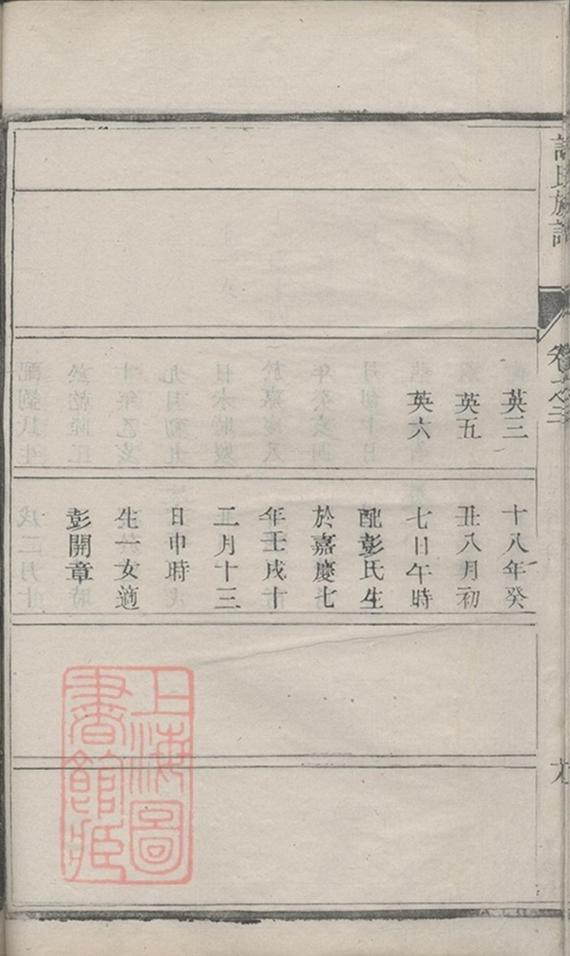 氏族譜
卷之三
英三
英五
英六
十八年癸
丑八月初
七日午時
配彭氏生
於嘉慶七
年壬戌十
二月十三
日申時
生一女適
彭開章
上海圖
書館藏